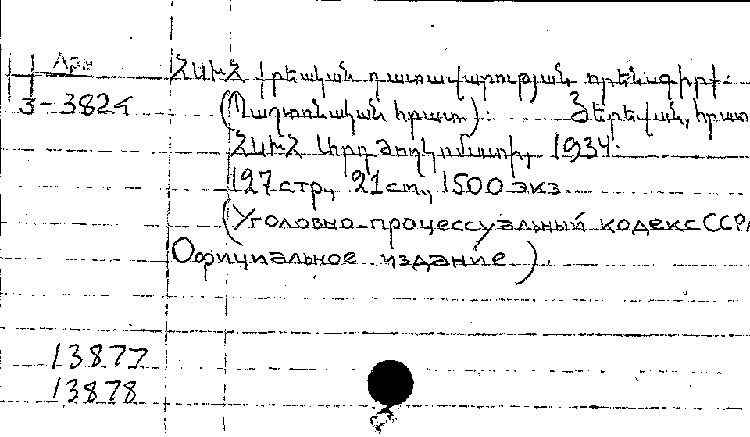 Арм
ՀՍԽՀ քրեական դատավարության որենսգիրք.
3-3824 (Պաշտոնական հրատ). Յերեվան, հրատ
ՀՍԽՀ Արդ Ժողկոմատի, 1934.
127 стр., 21 см., 1500 экз.
(Уголовно-процессуальный кодекс ССРА
Официальное издание).
13877
13878